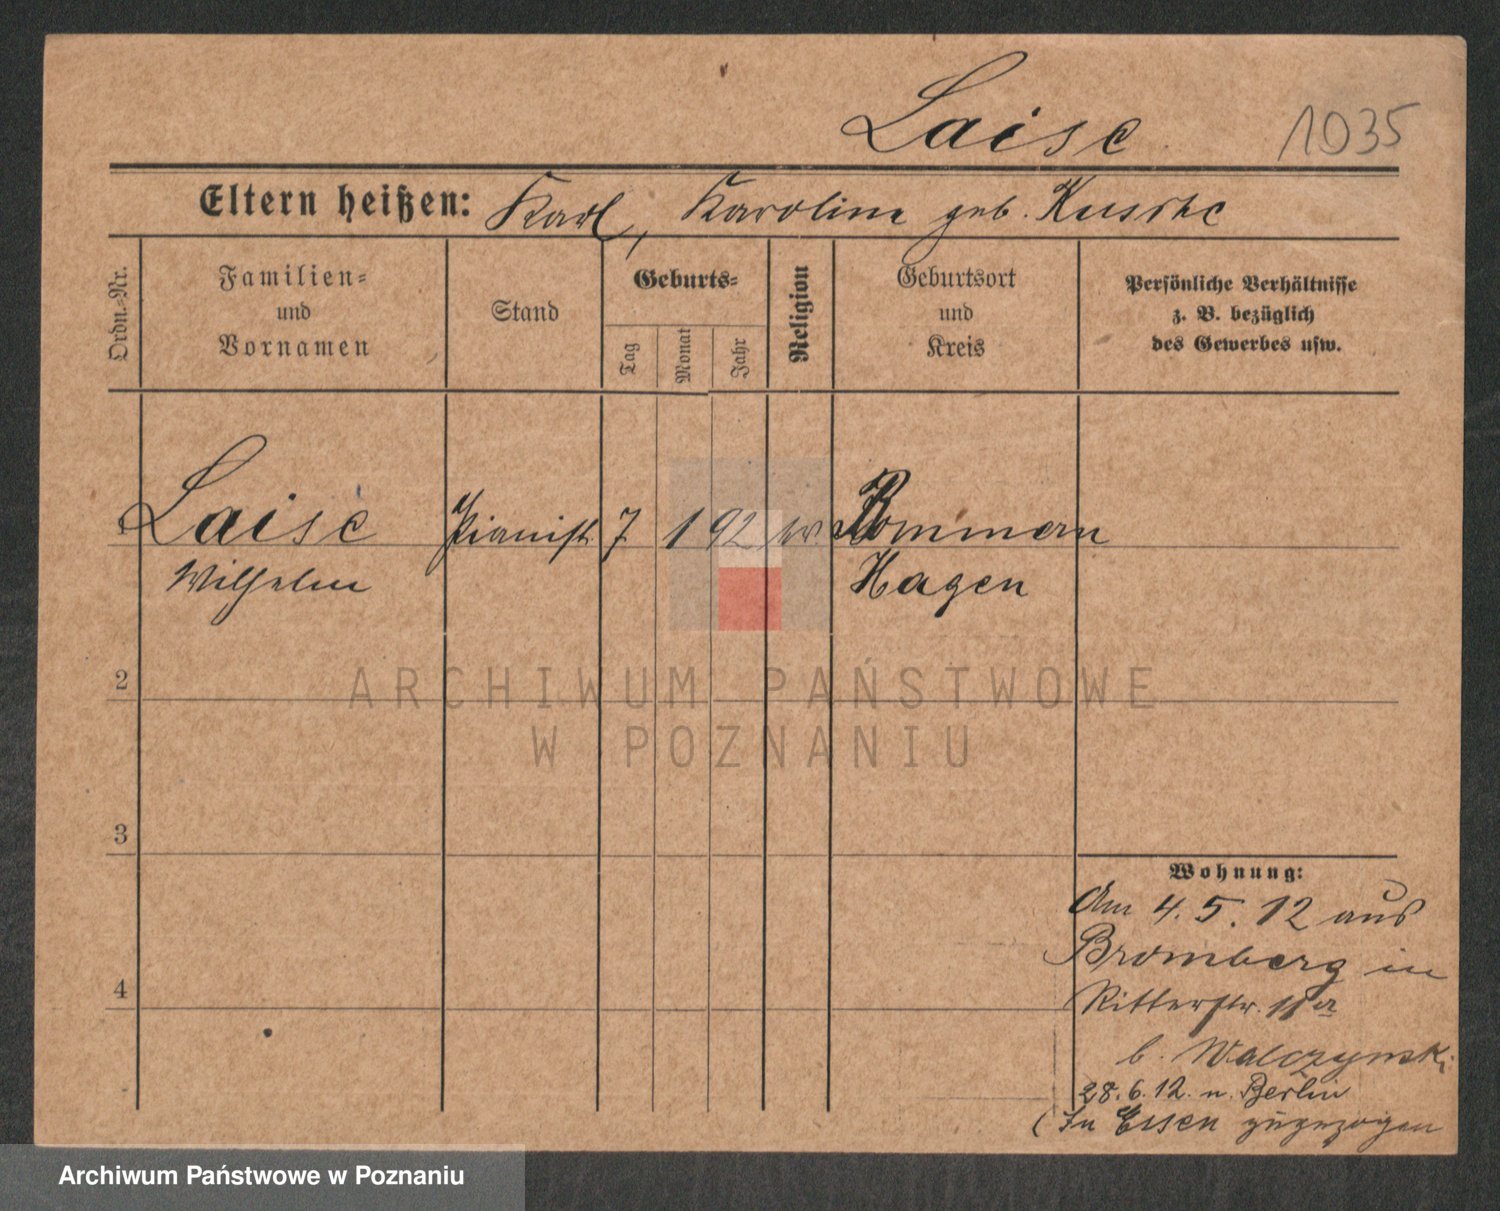 Laise 1035
Eltern heißen: Karl, Karoline geb.
Ordn.-Nr.
Familien-
und
Vornamen
Stand
Geburts-
Tag
Monat
Jahr
Religion
Geburtsort
und
Kreis
Persönliche Verhältnisse
z. B. bezüglich
des Gewerbes usw.
1 Laise Pianist 7 1 92 ev. Pommern
Wilhelm Hagen
2
3
4
Wohnung:
Am 4. 5. 12 aus
Bromberg in
Ritterstr. 11a
b. Walczynski
28. 6. 12. n. Berlin
(In Essen zugezogen
ARCHIWUM PAŃSTWOWE
W POZNANIU
Archiwum Państwowe w Poznaniu